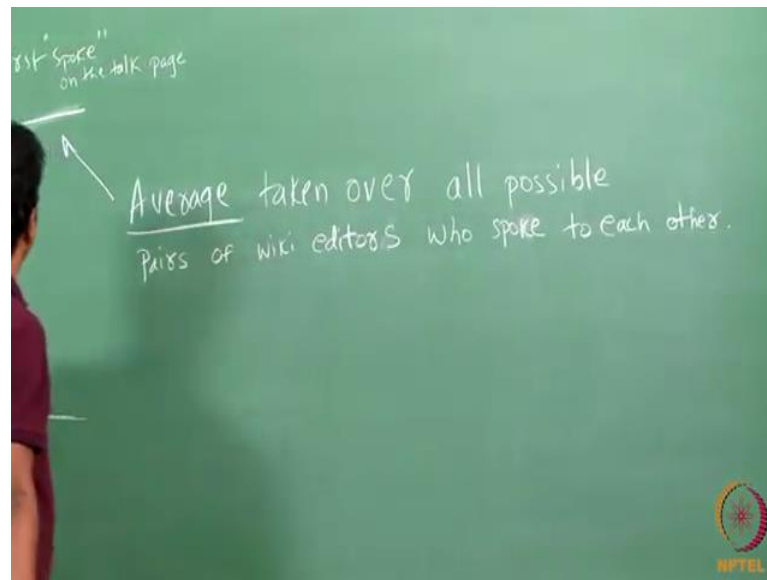 rst "spoke"
on the talk page
Average taken over all possible
Pairs of wiki editors who spoke to each other.
NPTEL